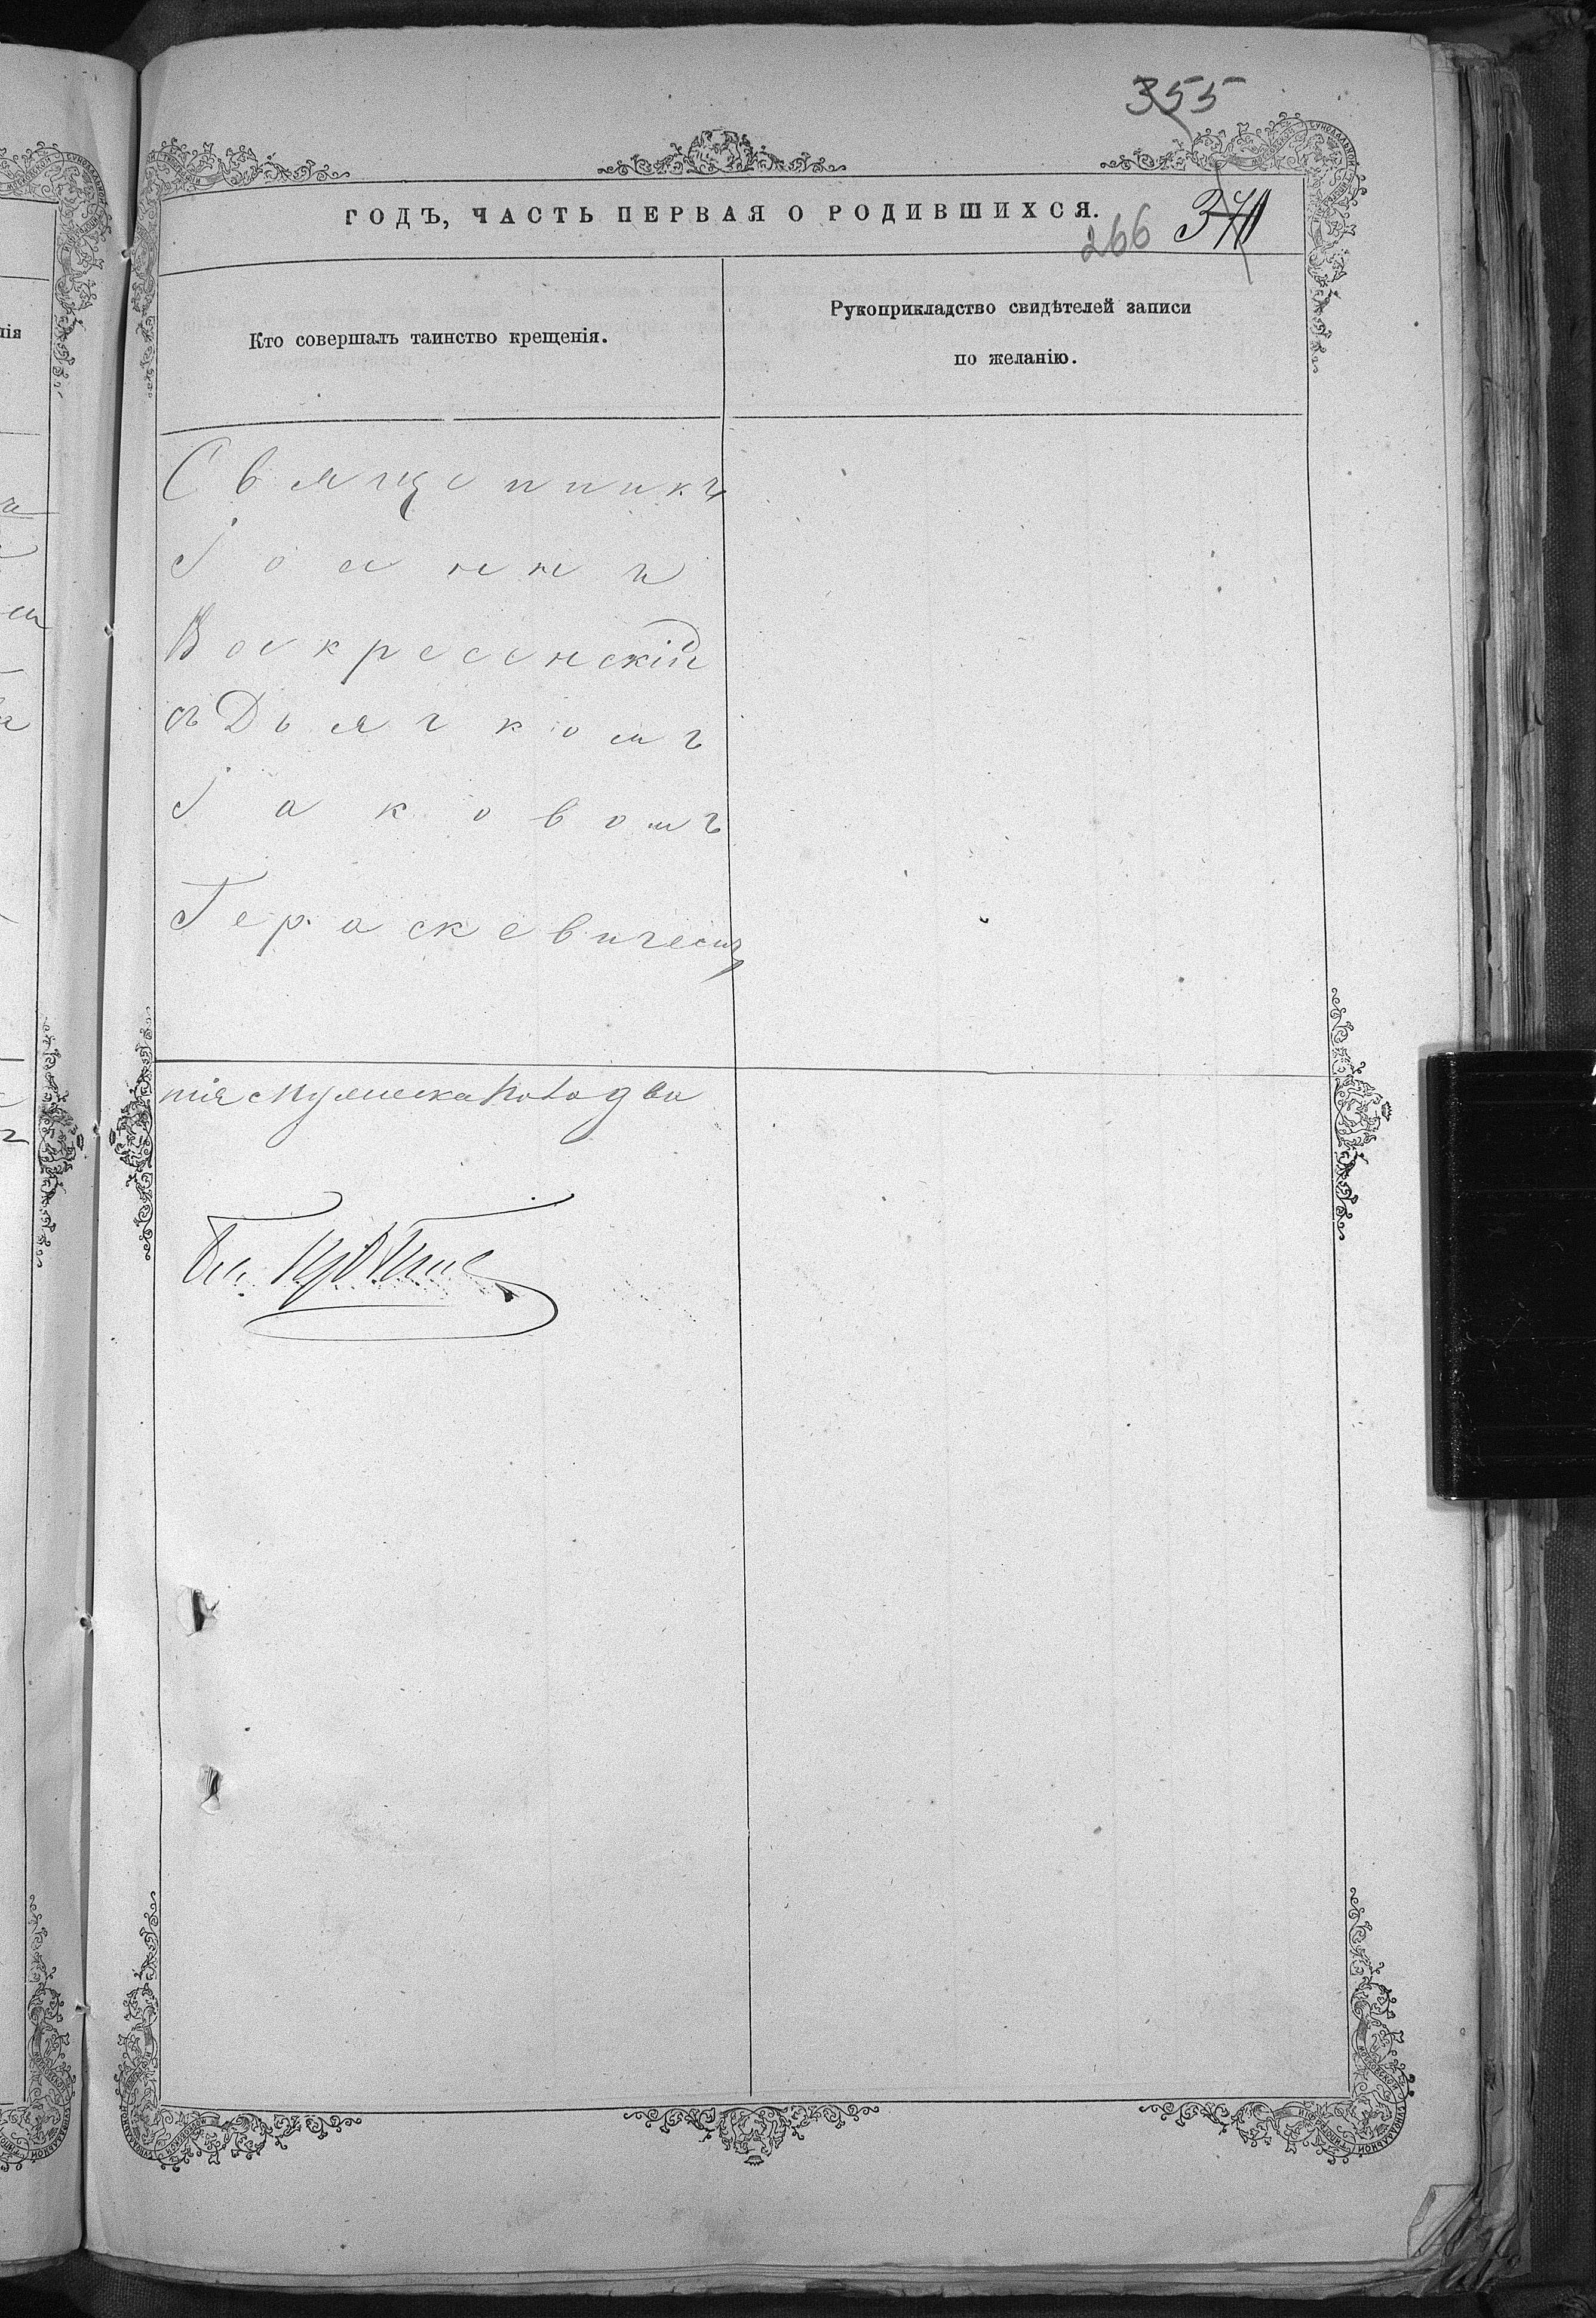 355
ГОДЪ, ЧАСТЬ ПЕРВАЯ О РОДИВШИХСЯ.
266
Кто совершалъ таинство крещенія.
Рукоприкладство свидѣтелей записи
по желанію.
Священникъ
Іоаннъ
Воскресенскій
съ Дьячкомъ
Іаковомъ
Гераскевичемъ
нія мужеска пола два